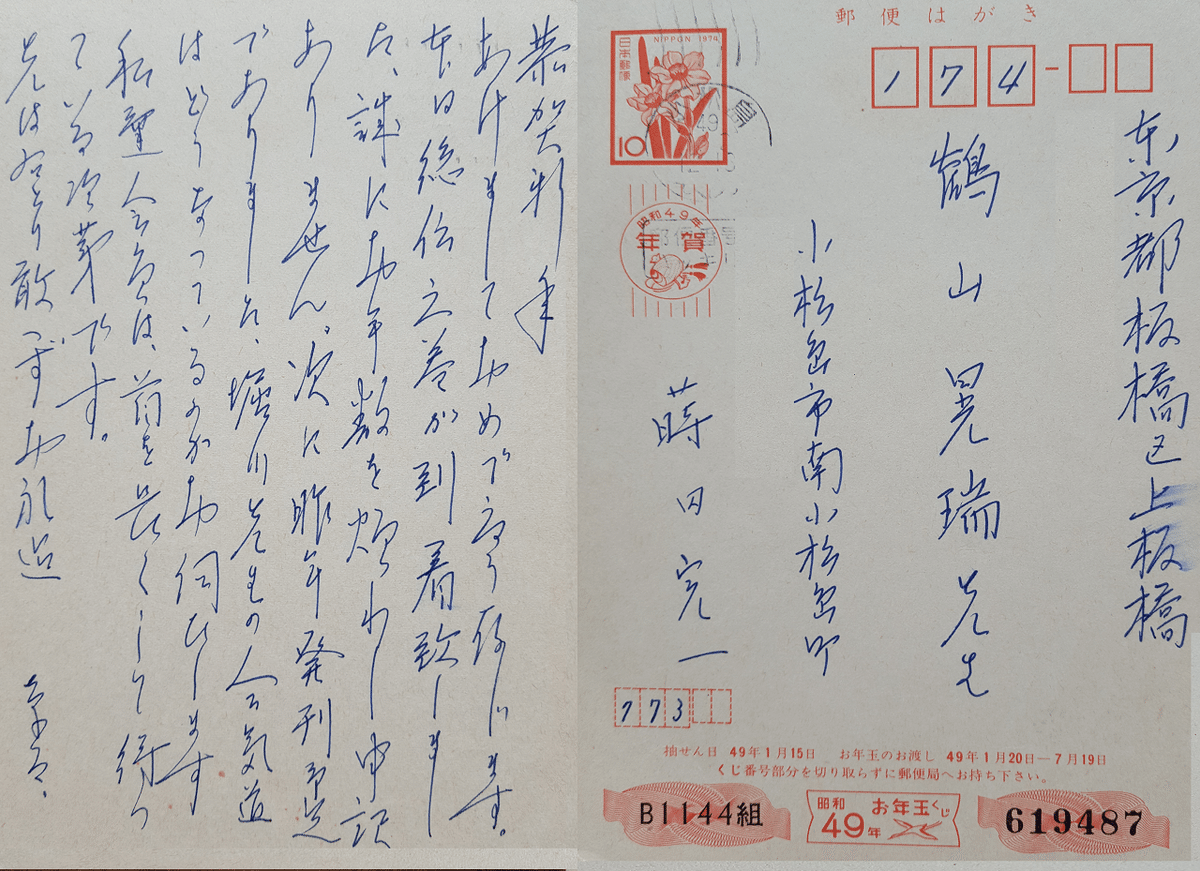 恭賀新年
あけましておめで度う存じます。
本日総伝之巻が到着致しまし
た、誠にお手数を煩わし申訳
ありません。次に昨年発刊予定
でありました、堀川先生の合気道
はどうなっているのかお伺ひします
私達会員は、首を長くして待つ
ている次第です。
先は右とり敢へずお礼迄
草々、
郵便はがき
NIPPON 1974
日本郵便
10
昭和49年
年賀
郵便番号
174
東京都板橋区上板橋
鶴山晃瑞先生
小松島市南小松島町
蒔田完一
773
抽せん日 49年1月15日 お年玉のお渡し 49年1月20日—7月19日
くじ番号部分を切り取らずに郵便局へお持ち下さい。
B1144組
昭和49年 お年玉くじ
619487